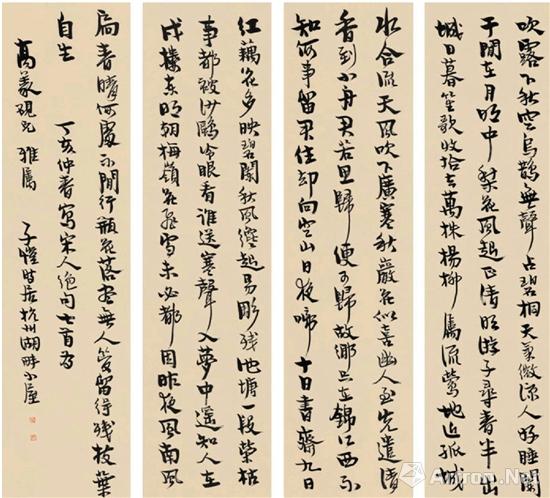 吹露下秋空烏鵲無聲占碧桐天氣微涼人好睡闌
干閒在月明中梨花風起正清明遊子尋春半出
城日暮笙歌收拾去萬株楊柳屬流鶯地近孤城
水合流天風吹下廣寒秋巖花似喜幽人至先遣清
香到小舟君若思歸便可歸故鄉只在錦江西不
知何事留君住却向空山日夜啼十日書齋九日
紅藕花多映碧闌秋風纔起易彫殘池塘一段榮枯
事都被沙鷗冷眼看誰送寒聲入夢中遙知人在
戍樓東明朝梅嶺花飛雪未必都因昨夜風南風
扃春晴何處不閒行瓶花落盡無人管留得殘枝葉
自生 丁亥仲春寫宋人絕句七首為
高義硯兄 雅屬 子愷時居杭州湖畔小屋
Artron.Net